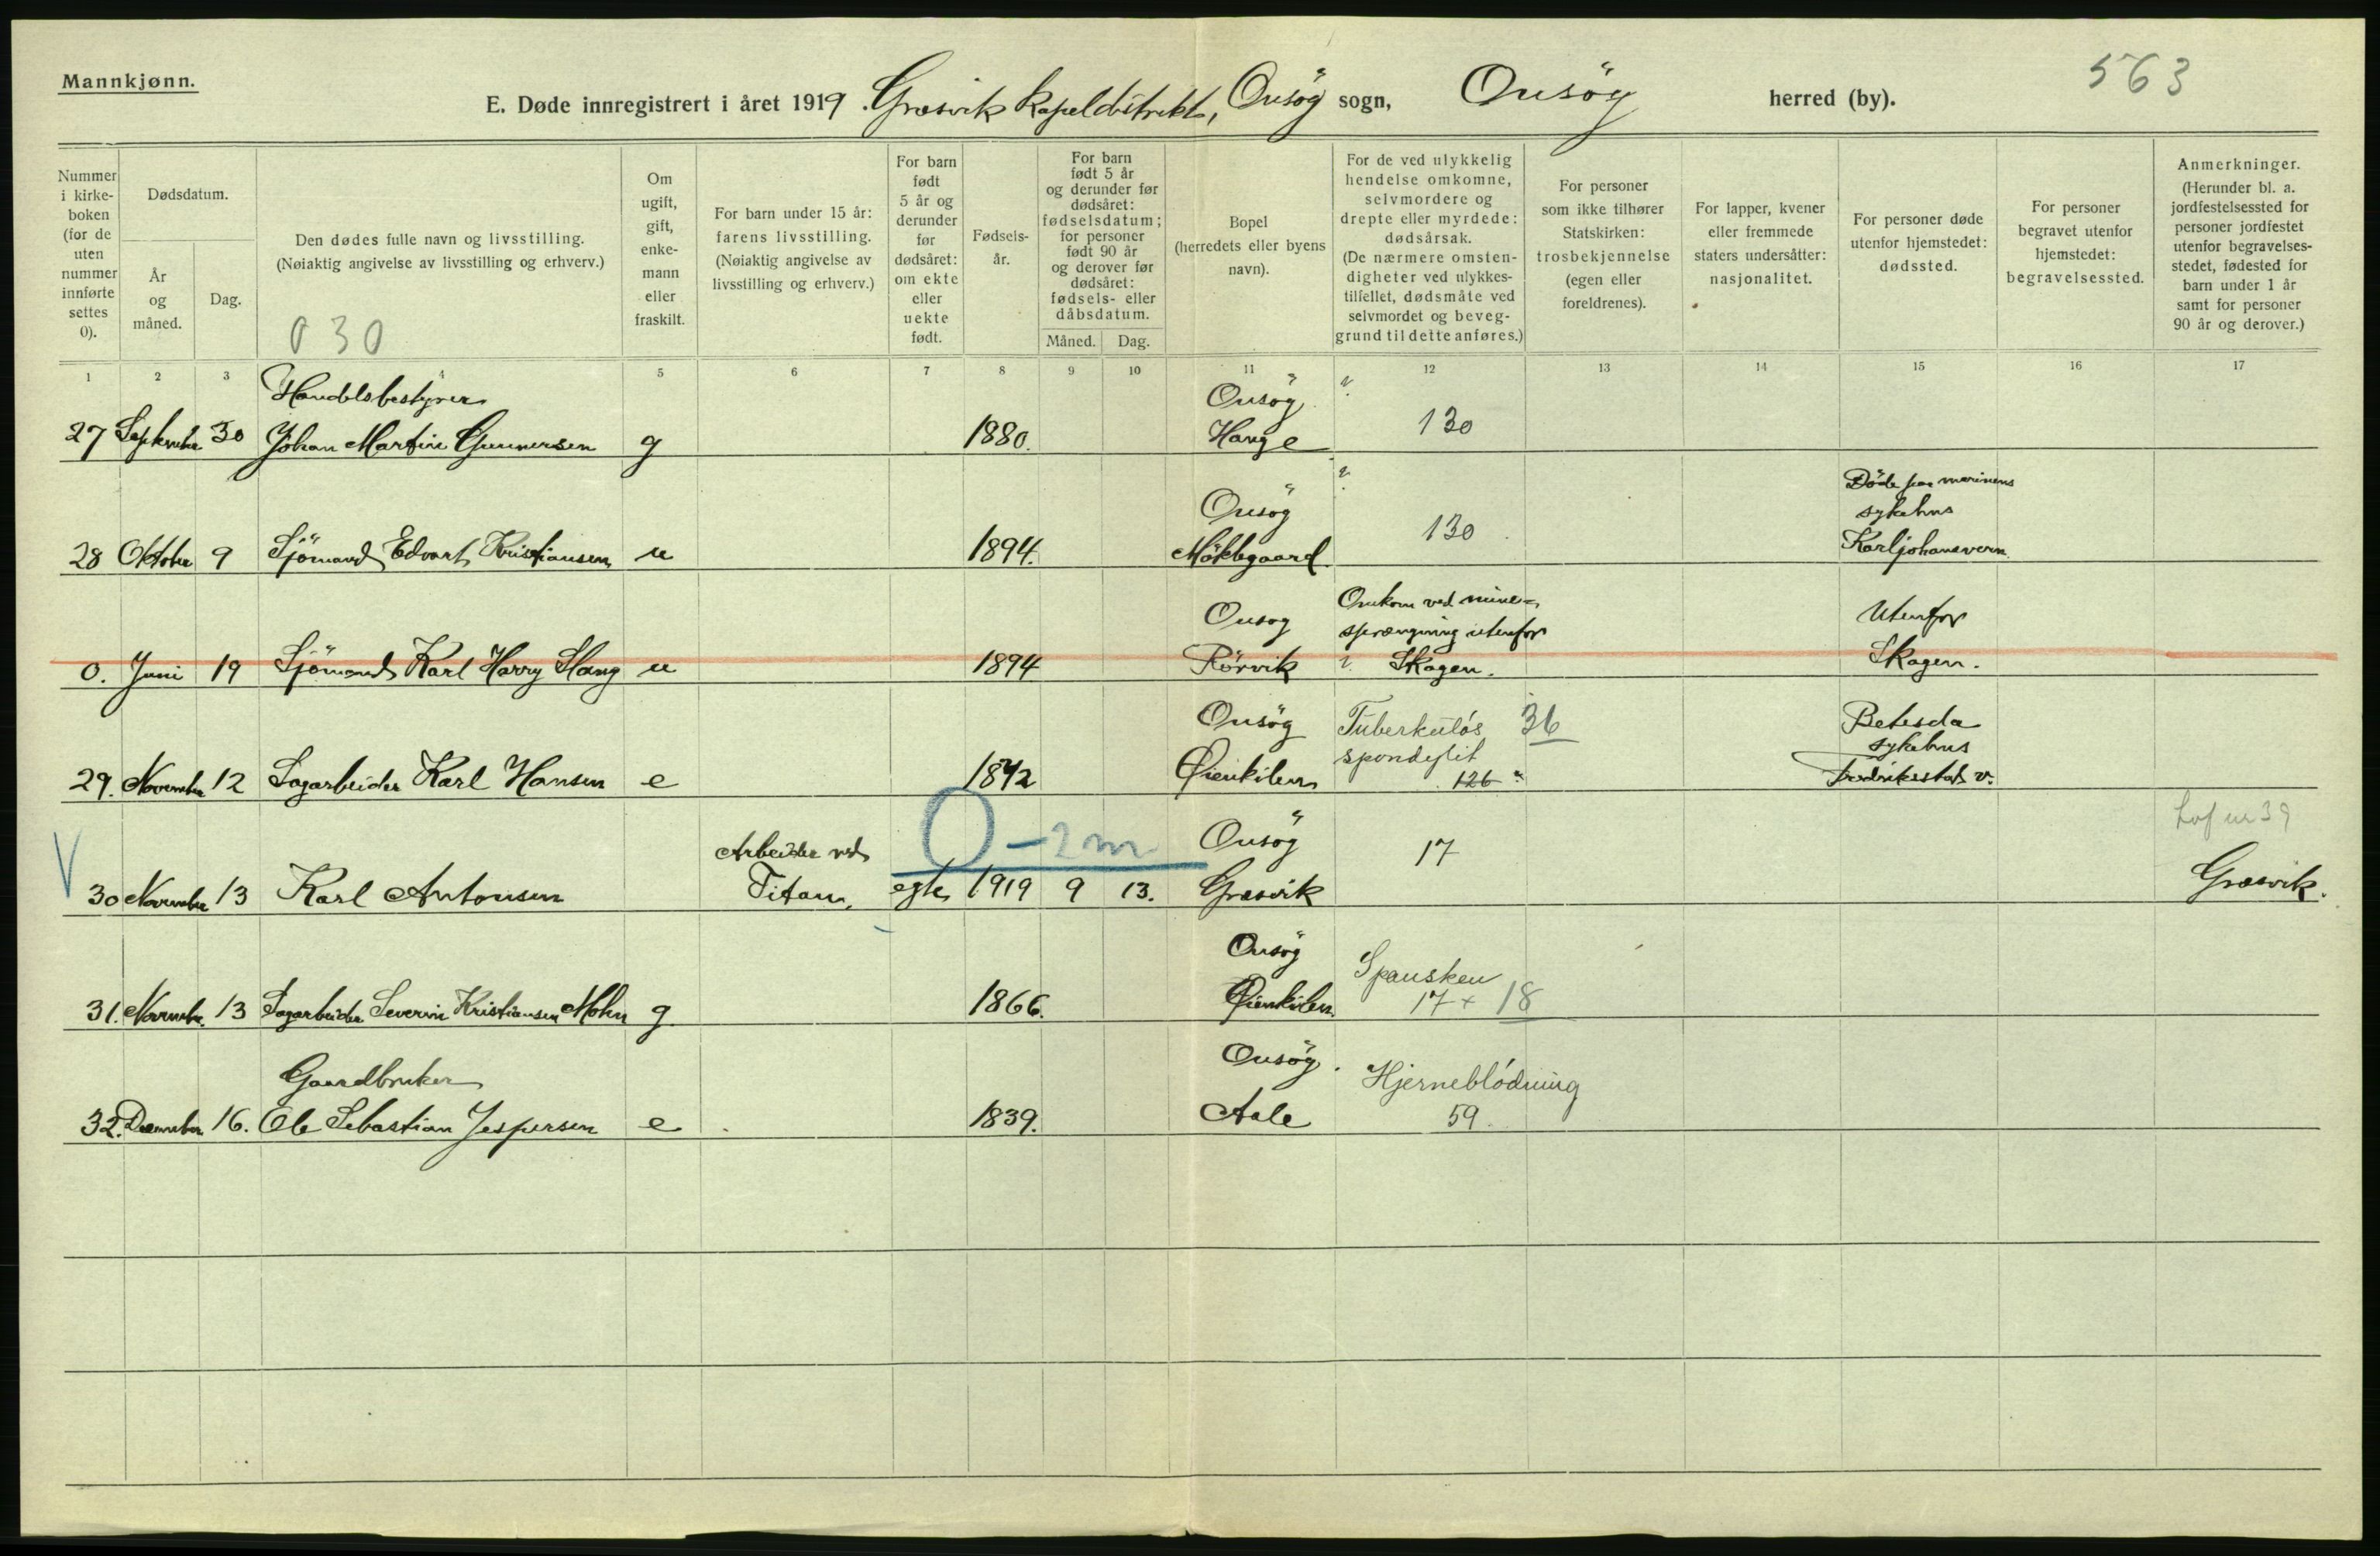 Mannkjønn.
563
E. Døde innregistrert i året 1919. Græsvik kapeldistrikt, Onsöy sogn, Onsöy herred (by).
Nummer i kirke-boken (for de uten nummer innførte settes 0).
Dødsdatum.
År og måned.
Dag.
Den dødes fulle navn og livsstilling.
(Nøiaktig angivelse av livsstilling og erhverv.)
030
Om ugift, gift, enke-mann eller fraskilt.
For barn under 15 år: farens livsstilling.
(Nøiaktig angivelse av livsstilling og erhverv.)
For barn født 5 år og derunder før dødsåret: om ekte eller uekte født.
Fødsels-år.
For barn født 5 år og derunder før dødsåret: fødselsdatum; for personer født 90 år og derover før dødsåret: fødsels- eller dåbsdatum.
Måned. Dag.
Bopel (herredets eller byens navn).
For de ved ulykkelig hendelse omkomne, selvmordere og drepte eller myrdede: dødsårsak.
(De nærmere omsten-digheter ved ulykkes-tilfellet, dødsmåte ved selvmordet og beveg-grund til dette anføres.)
For personer som ikke tilhører Statskirken: trosbekjennelse (egen eller foreldrenes).
For lapper, kvener eller fremmede staters undersåtter: nasjonalitet.
For personer døde utenfor hjemstedet: dødssted.
For personer begravet utenfor hjemstedet: begravelsessted.
Anmerkninger.
(Herunder bl. a. jordfestelsessted for personer jordfestet utenfor begravelses-stedet, fødested for barn under 1 år samt for personer 90 år og derover.)
1 2 3 4 5 6 7 8 9 10 11 12 13 14 15 16 17
Handelsbestyrer Onsöy
27 September 30 Johan Martin Gunnersen g 1880. Hauge 130
Onsöy Döde paa marinens
sykehus
28 Oktober 9 Sjömand Edvart Kristiansen u 1894. Möklegaard. 130 Karljohansvern.
Onsoy Omkom ved mine-
sprængning utenfor Utenfor
0. Juni 19 Sjömand Karl Harry Hang u 1894 Rörvik Skagen. Skagen.
Onsöy Tuberkuløs 36 Betesda
spondylit sykehus
29. November 12 Sagarbeider Karl Hansen e 1842 Øienkilen 126 Fredrikstad v.
0 - 2 m
Arbeider ved Onsöy 17
V 30 November 13 Karl Antonsen Titan. egte 1919 9 13. Græsvik Græsvik.
Onsöy Spansken
31. November. 13 Sagarbeider Severin Kristiansen Mohn g. 1866. Øienkilen. 17 + 18
Gaardbruker Onsöy. Hjerneblödning
32. December 16. Ole Sebastian Jespersen e 1839. Aale 59.